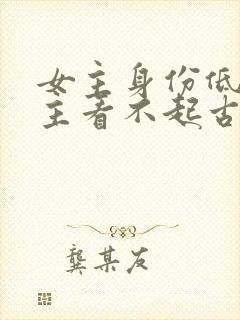 女主身份低
主看不起古
龚某友